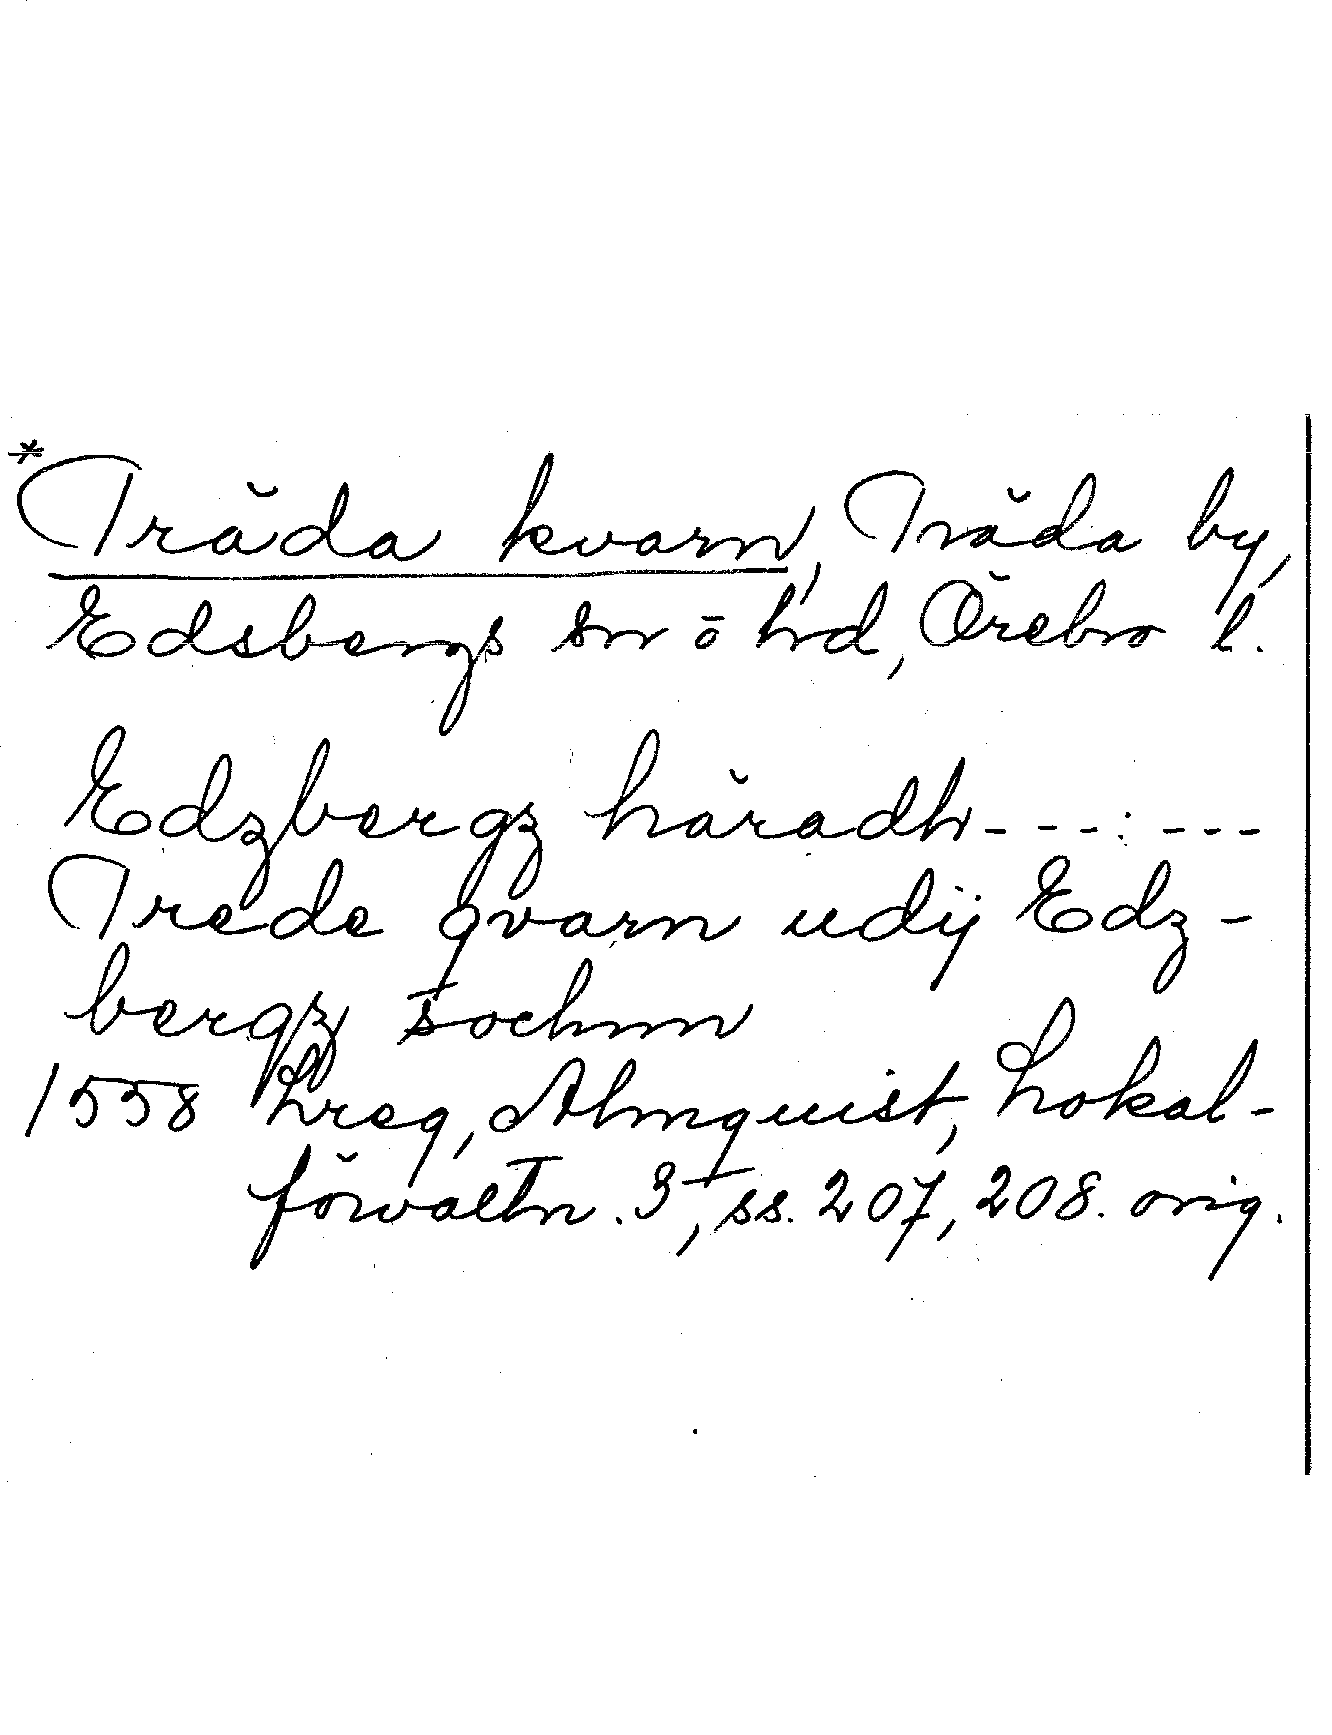 *Träda kvarn, Träda by,
Edsbergs sn o hd, Örebro l.
Edzbergz häradh - - - : - - -
Trede qvarn udij Edz-
bergz sochnn
1558 Lreg, Almquist, Lokal-
förvaltn. 3, ss. 207, 208. orig.